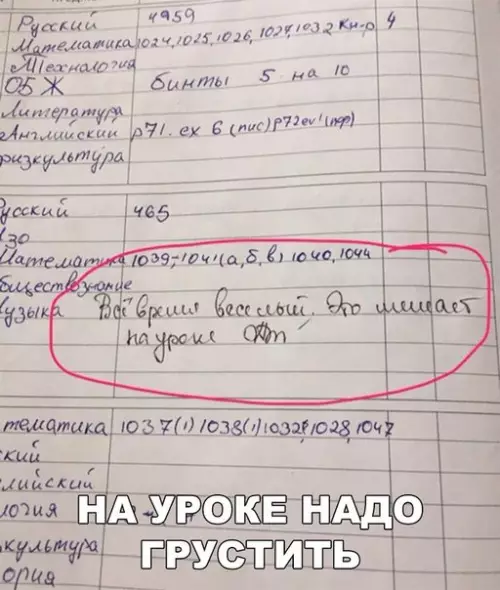 Русский 4959
Математика 1024, 1025, 1026, 1027, 1032 Кн-р 4
Технология
ОБЖ бинты 5 на 10
Литература
Английский р71. ex 6 (пис) р72 ex 1 (пер)
физкультура
усский 465
ИЗО
Математика 1039, 1041 (а, б, в) 1040, 1044
бществознание
узыка Всё время веселый. Это мешает
на уроке
тематика 1037(1) 1038(1) 1032, 1028, 1047
ский
лийский
логия
культура
ория
НА УРОКЕ НАДО
ГРУСТИТЬ